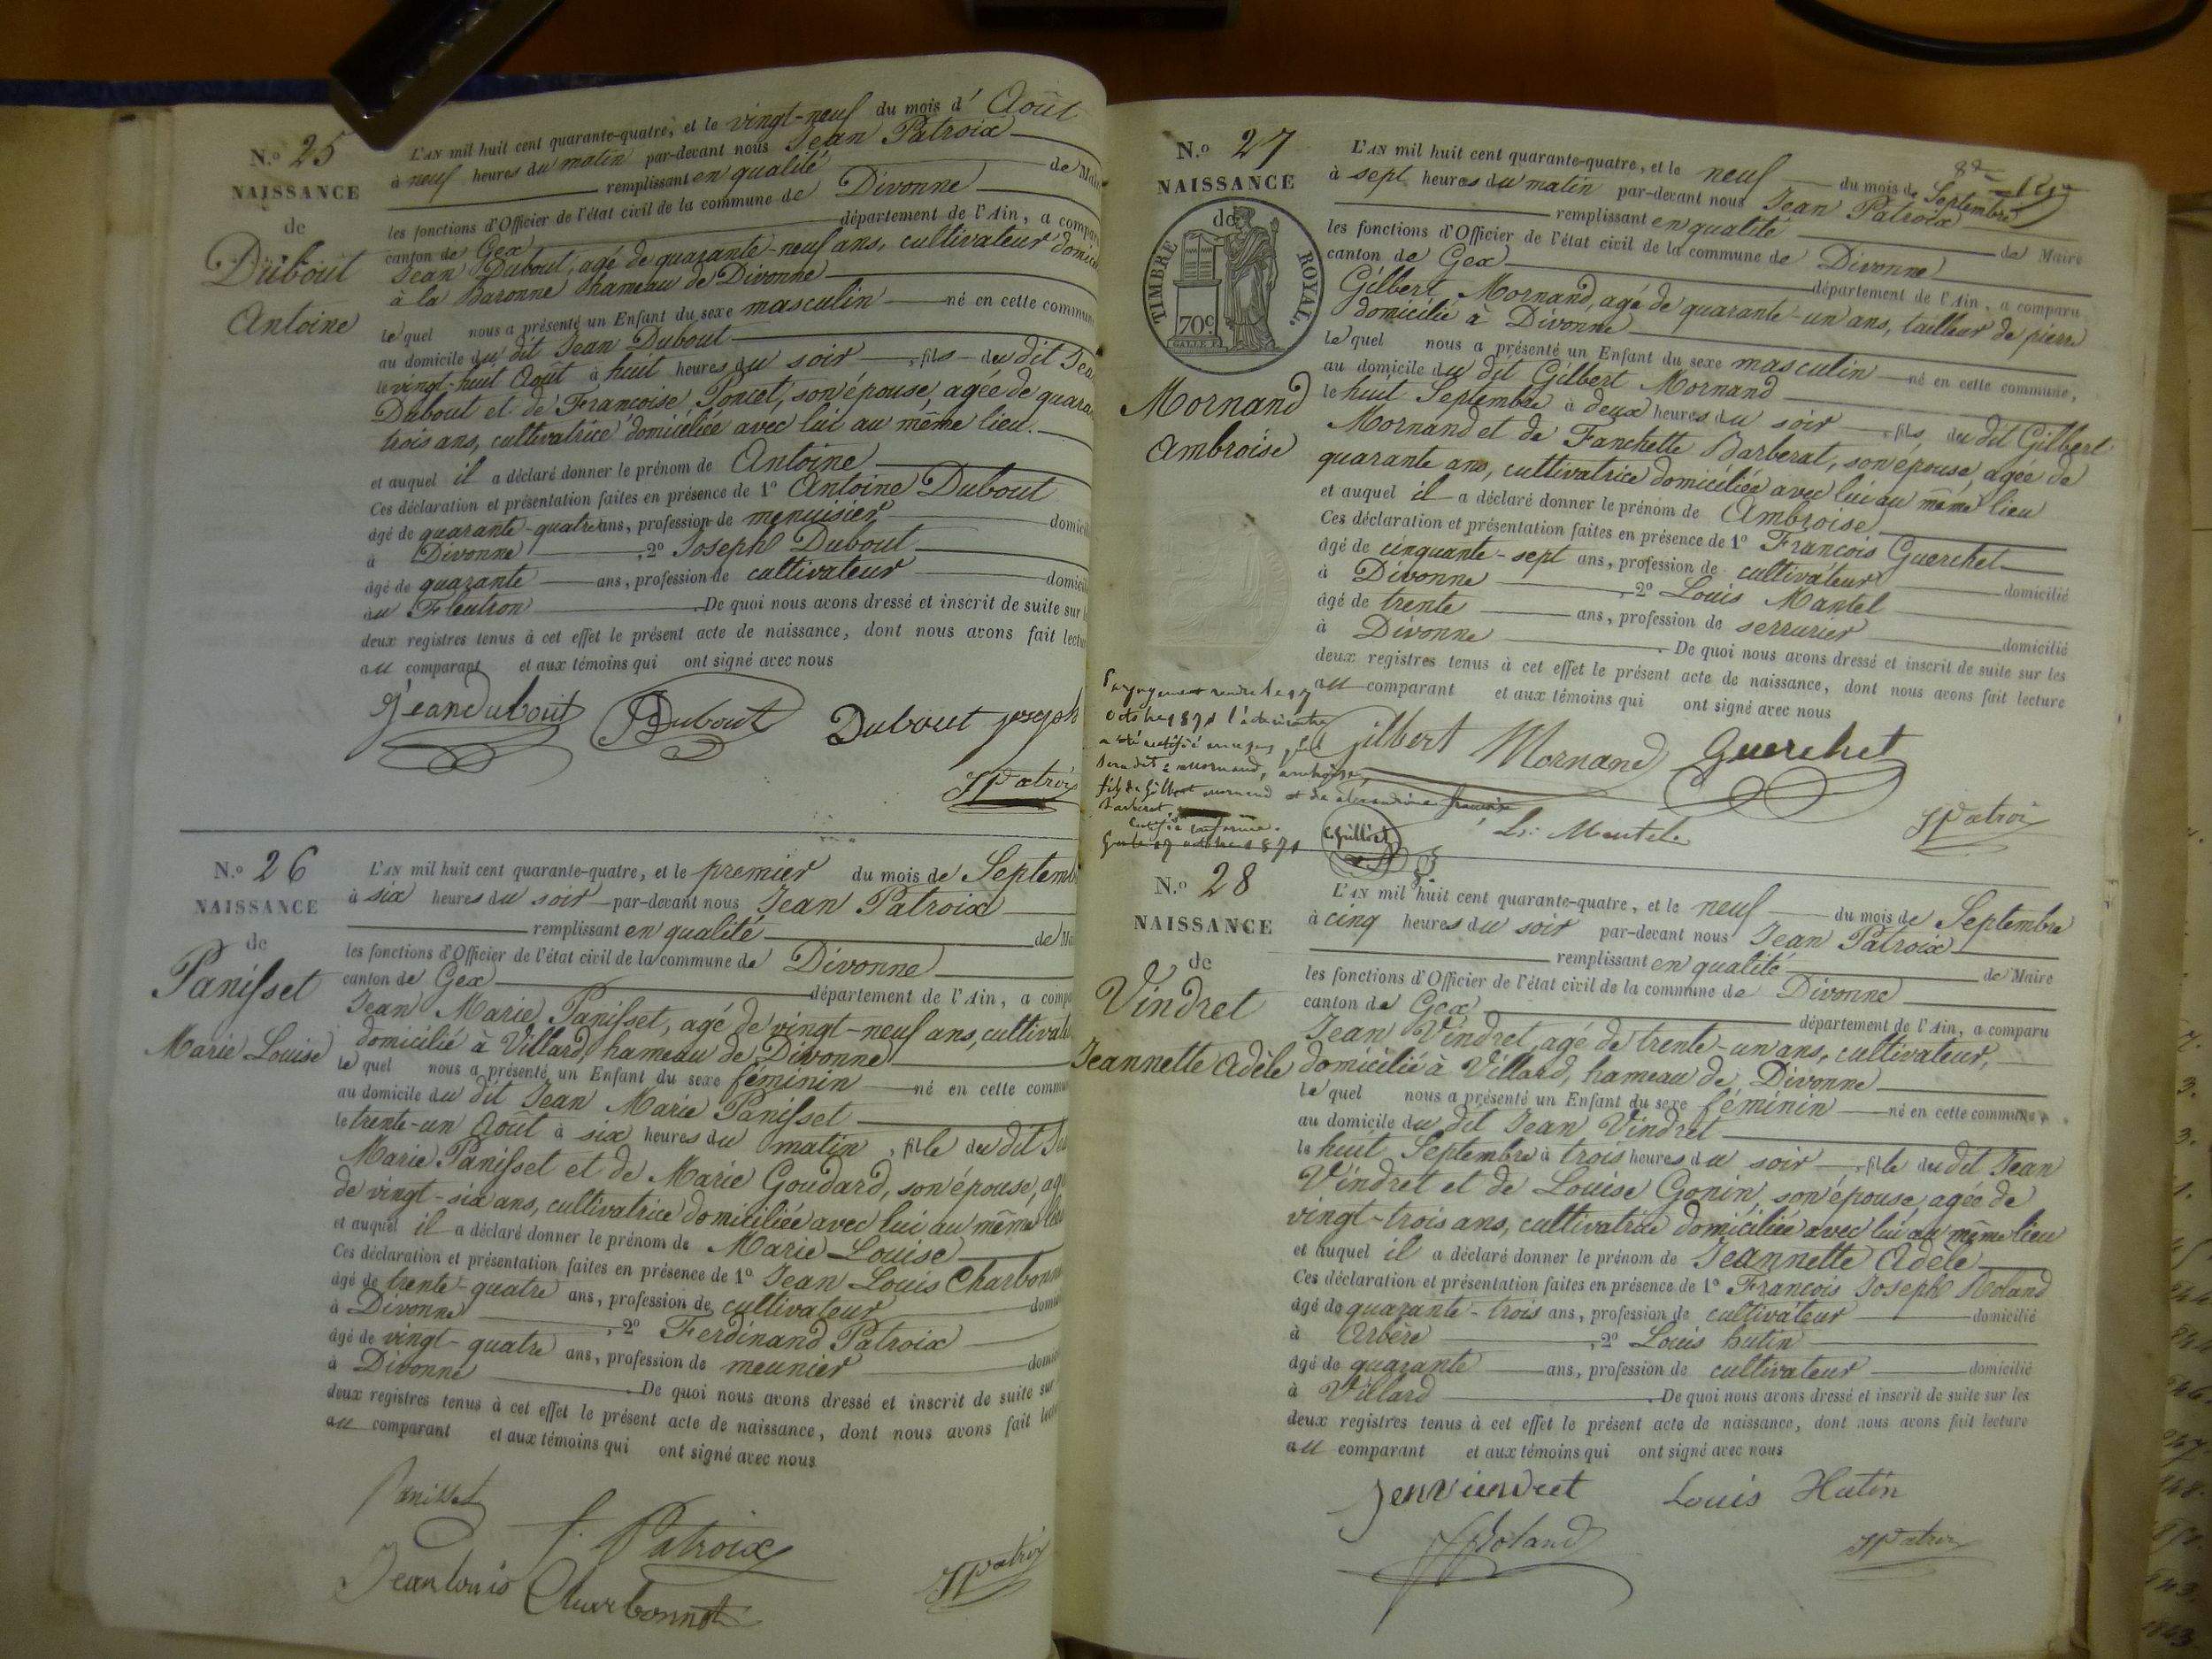 N.o 25
NAISSANCE
de
Dubout
Antoine
L'AN mil huit cent quarante-quatre, et le vingt-neuf du mois d' Août
à neuf heures du matin par-devant nous Jean Patroix
remplissant en qualité de Mai
les fonctions d'Officier de l'état civil de la commune de Divonne
canton de Gex département de l'Ain, a compa
Jean Dubout, agé de quarante-neuf ans, cultivateur domici
à la Baronne hameau de Divonne
lequel nous a présenté un Enfant du sexe masculin né en cette commun
au domicile du dit Jean Dubout
le vingt-huit Août à huit heures du soir, fils du dit Jea
Dubout et de Françoise Poncet, son épouse, agée de quara
trois ans, cultivatrice domiciliée avec lui au même lieu.
et auquel il a déclaré donner le prénom de Antoine
Ces déclaration et présentation faites en présence de 1o Antoine Dubout
âgé de quarante-quatre ans, profession de menuisier domicil
à Divonne, 2o Joseph Dubout
âgé de quarante ans, profession de cultivateur domicil
au Fleutron. De quoi nous avons dressé et inscrit de suite sur
deux registres tenus à cet effet le présent acte de naissance, dont nous avons fait lectu
au comparant et aux témoins qui ont signé avec nous
Jean Dubout Dubout Dubout joseph
JPatroix
N.o 26
NAISSANCE
de
Panisset
Marie Louise
L'AN mil huit cent quarante-quatre, et le premier du mois de Septemb
à six heures du soir par-devant nous Jean Patroix
remplissant en qualité de Mai
les fonctions d'Officier de l'état civil de la commune de Divonne
canton de Gex département de l'Ain, a comp
Jean Marie Panisset, agé de vingt-neuf ans, cultivat
domicilié à Villard, hameau de Divonne
lequel nous a présenté un Enfant du sexe féminin né en cette commu
au domicile du dit Jean Marie Panisset
le trente-un Août à six heures du matin, fille du dit Jea
Marie Panisset et de Marie Goudard, son épouse, agé
de vingt-six ans, cultivatrice domiciliée avec lui au même lieu
et auquel il a déclaré donner le prénom de Marie Louise
Ces déclaration et présentation faites en présence de 1o Jean Louis Charbonn
âgé de trente-quatre ans, profession de cultivateur domi
à Divonne, 2o Ferdinand Patroix
âgé de vingt-quatre ans, profession de meunier domi
à Divonne. De quoi nous avons dressé et inscrit de suite sur
deux registres tenus à cet effet le présent acte de naissance, dont nous avons fait lect
au comparant et aux témoins qui ont signé avec nous
Panisset
f. Patroix
Jean louis Charbonnot
JPatroix
N.o 27
NAISSANCE
de
TIMBRE ROYAL.
70c
Mornand
Ambroise
L'AN mil huit cent quarante-quatre, et le neuf du mois de Septembre
à sept heures du matin par-devant nous Jean Patroix
remplissant en qualité de Maire
les fonctions d'Officier de l'état civil de la commune de Divonne
canton de Gex département de l'Ain, a comparu
Gilbert Mornand, agé de quarante-un ans, tailleur de pierre
domicilié à Divonne
lequel nous a présenté un Enfant du sexe masculin né en cette commune,
au domicile du dit Gilbert Mornand
le huit Septembre à deux heures du soir, fils du dit Gilbert
Mornand et de Fanchette Barberat, son épouse, agée de
quarante ans, cultivatrice domiciliée avec lui au même lieu
et auquel il a déclaré donner le prénom de Ambroise
Ces déclaration et présentation faites en présence de 1o François Guerchet
âgé de cinquante-sept ans, profession de cultivateur domicilié
à Divonne, 2o Louis Mantel
âgé de trente ans, profession de serrurier domicilié
à Divonne. De quoi nous avons dressé et inscrit de suite sur les
deux registres tenus à cet effet le présent acte de naissance, dont nous avons fait lecture
au comparant et aux témoins qui ont signé avec nous
Par jugement rendu le 17
octobre 1871 l'acte ci contre
a été rectifié
mornand, ambroise,
fils de Gilbert mornand et de alexandrine françoise
Barberat
Certifié conforme.
17 octobre 1871
Gilbert Mornand Guerchet
Ls: Mantel
JPatroix
N.o 28
NAISSANCE
de
Vindret
Jeannette Adèle
L'AN mil huit cent quarante-quatre, et le neuf du mois de Septembre
à cinq heures du soir par-devant nous Jean Patroix
remplissant en qualité de Maire
les fonctions d'Officier de l'état civil de la commune de Divonne
canton de Gex département de l'Ain, a comparu
Jean Vindret, agé de trente-un ans, cultivateur,
domicilié à Villard, hameau de Divonne
lequel nous a présenté un Enfant du sexe féminin né en cette commune,
au domicile du dit Jean Vindret
le huit Septembre à trois heures du soir, fille du dit Jean
Vindret et de Louise Gonin, son épouse, agée de
vingt-trois ans, cultivatrice domiciliée avec lui au même lieu
et auquel il a déclaré donner le prénom de Jeannette Adèle
Ces déclaration et présentation faites en présence de 1o François Joseph Roland
âgé de quarante-trois ans, profession de cultivateur domicilié
à Arbère, 2o Louis hutin
âgé de quarante ans, profession de cultivateur domicilié
à Villard. De quoi nous avons dressé et inscrit de suite sur les
deux registres tenus à cet effet le présent acte de naissance, dont nous avons fait lecture
au comparant et aux témoins qui ont signé avec nous
Jean Vindret Louis Hutin
Roland JPatroix